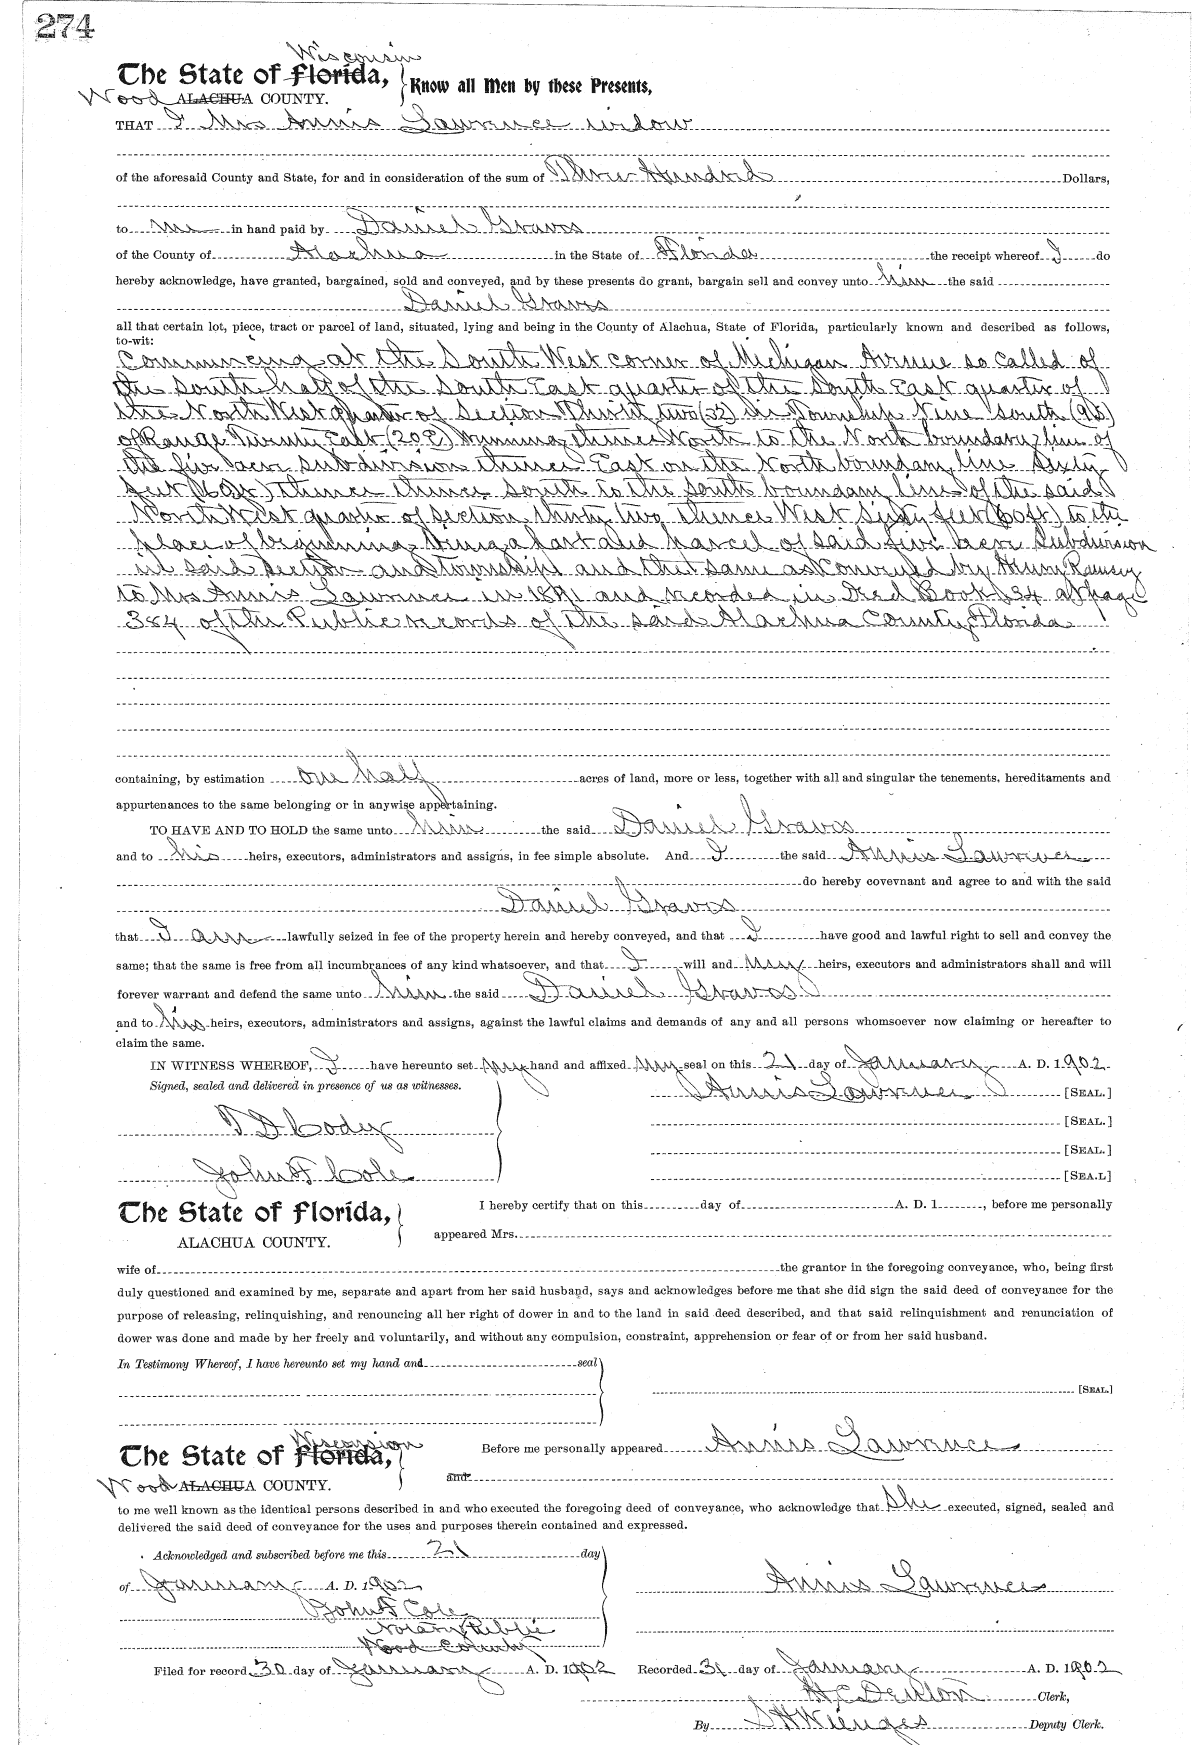 274
Wisconsin
The State of Florida,
Know all Men by these Presents,
Wood ALACHUA COUNTY.
THAT I Mrs Annis Lawrence widow
of the aforesaid County and State, for and in consideration of the sum of Three Hundred Dollars,
to me in hand paid by Daniel Graves
of the County of Alachua in the State of Florida the receipt whereof I do
hereby acknowledge, have granted, bargained, sold and conveyed, and by these presents do grant, bargain sell and convey unto him the said
Daniel Graves
all that certain lot, piece, tract or parcel of land, situated, lying and being in the County of Alachua, State of Florida, particularly known and described as follows,
to-wit:
Commencing at the South West corner of Michigan Avenue so called of
the South half of the South East quarter of the South East quarter of
the North West quarter of Section Thirty two (32) in Township Nine South (9S)
of Range Twenty East (20E) Running thence North to the North boundary line of
the five acre subdivision thence East on the North boundary line Sixty
feet (60ft) thence thence South to the South boundary line of the said
North West quarter of section thirty two thence West Sixty feet (60ft) to the
place of beginning, being a part and parcel of said five acre Subdivision
in said section and township and the same as conveyed by Ramsey
to Mrs Annis Lawrence in 1891 and recorded in Deed Book 34 at page
384 of the Public records of the said Alachua County Florida
containing, by estimation one half acres of land, more or less, together with all and singular the tenements, hereditaments and
appurtenances to the same belonging or in anywise appertaining.
TO HAVE AND TO HOLD the same unto him the said Daniel Graves
and to his heirs, executors, administrators and assigns, in fee simple absolute. And I the said Annis Lawrence
do hereby covevnant and agree to and with the said
Daniel Graves
that I am lawfully seized in fee of the property herein and hereby conveyed, and that I have good and lawful right to sell and convey the
same; that the same is free from all incumbrances of any kind whatsoever, and that I will and my heirs, executors and administrators shall and will
forever warrant and defend the same unto him the said Daniel Graves
and to his heirs, executors, administrators and assigns, against the lawful claims and demands of any and all persons whomsoever now claiming or hereafter to
claim the same.
IN WITNESS WHEREOF, I have hereunto set my hand and affixed my seal on this 21 day of January A. D. 1902
Signed, sealed and delivered in presence of us as witnesses.
Annis Lawrence [SEAL.]
T D Cody
[SEAL.]
[SEAL.]
John F Cole
[SEA.L]
The State of Florida,
I hereby certify that on this day of A. D. 1 , before me personally
ALACHUA COUNTY.
appeared Mrs.
wife of the grantor in the foregoing conveyance, who, being first
duly questioned and examined by me, separate and apart from her said husband, says and acknowledges before me that she did sign the said deed of conveyance for the
purpose of releasing, relinquishing, and renouncing all her right of dower in and to the land in said deed described, and that said relinquishment and renunciation of
dower was done and made by her freely and voluntarily, and without any compulsion, constraint, apprehension or fear of or from her said husband.
In Testimony Whereof, I have hereunto set my hand and seal
[SEAL.]
Wisconsion
The State of Florida,
Before me personally appeared Annis Lawrence
Wood ALACHUA COUNTY.
and
to me well known as the identical persons described in and who executed the foregoing deed of conveyance, who acknowledge that She executed, signed, sealed and
delivered the said deed of conveyance for the uses and purposes therein contained and expressed.
Acknowledged and subscribed before me this 21 day
of January A. D. 1902
Annis Lawrence
John F Cole
Notary Public
Wood County
Filed for record 30 day of January A. D. 1902 Recorded 31 day of January A. D. 1902
H C Denton Clerk,
By S H Wienges Deputy Clerk.